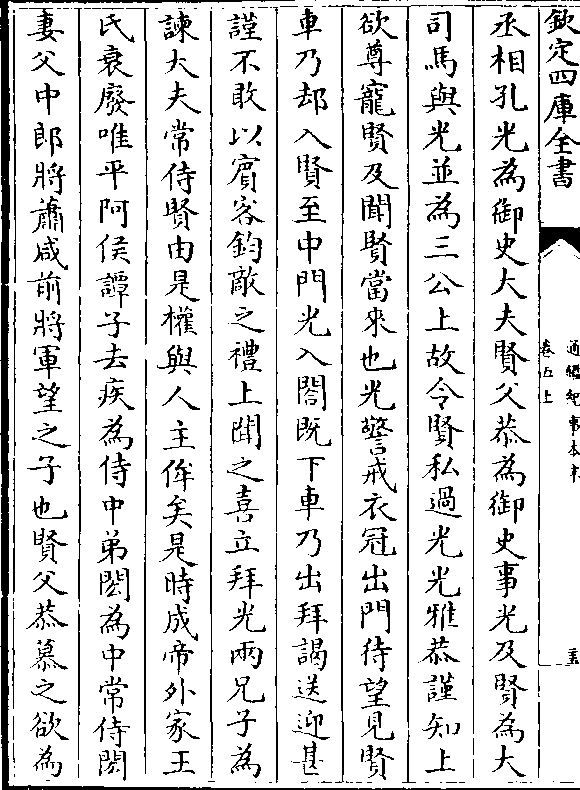 欽定四庫全書
通鑑紀事本末
卷五上
丞相孔光為御史大夫賢父恭為御史事光及賢為大
司馬與光並為三公上故令賢私過光光雅恭謹知上
欲尊寵賢及聞賢當來也光警戒衣冠出門待望見賢
車乃却入賢至中門光入閤既下車乃出拜謁送迎甚
謹不敢以賓客鈞敵之禮上聞之喜立拜光兩兄子為
諫大夫常侍賢由是權與人主侔矣是時成帝外家王
氏衰廢唯平阿侯譚子去疾為侍中弟閎為中常侍閎
妻父中郎將蕭咸前將軍望之子也賢父恭慕之欲為